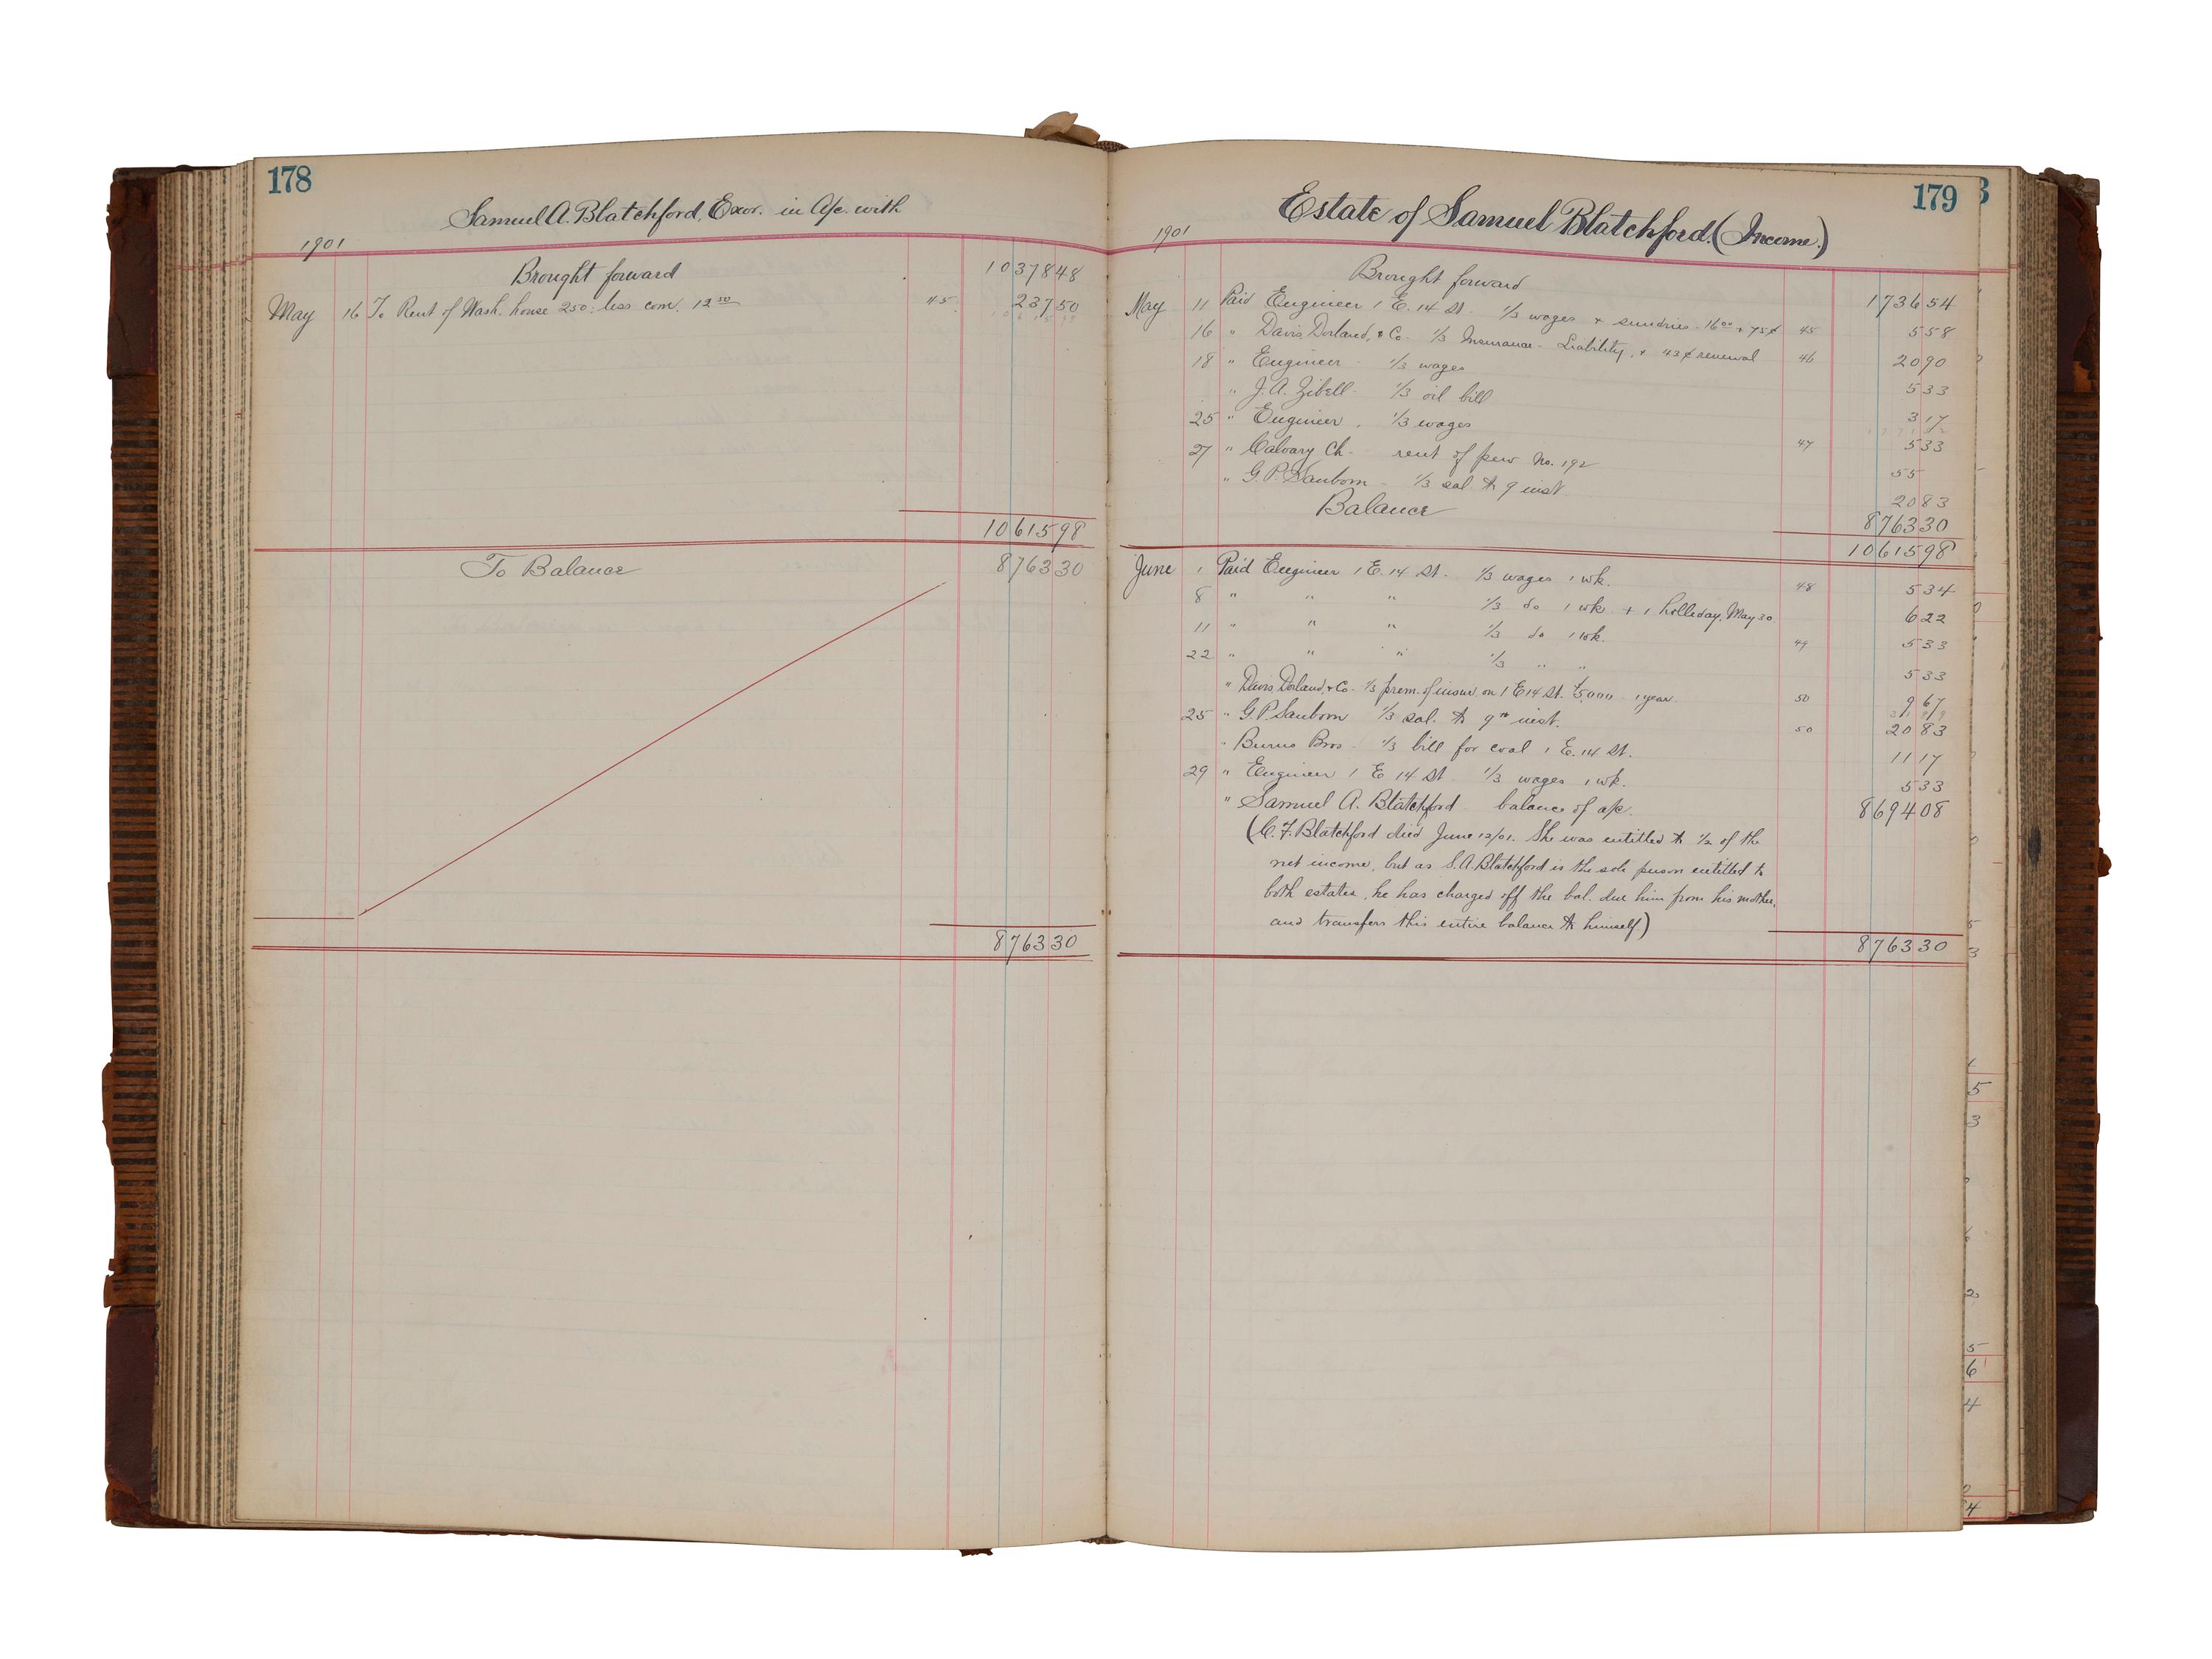 178
Samuel A. Blatchford, Exor. in A/c. with
1901
Brought forward 10378 48
May 16 To Rent of Wash. house 250: less com. 12 50 45 237 50
10615 98
To Balance 8763 30
8763 30
179
Estate of Samuel Blatchford. (Income.)
1901
Brought forward 1736 54
May 11 Paid Engineer 1 E. 14 St. 1/3 wages & sundries - 16 00 + 75¢ 45 5 58
16 " Davis, Dorland, & Co. 1/3 Insurance - Liability, & 43¢ renewal 46 20 90
18 " Engineer 1/3 wages 5 33
" J. A. Zibell - 1/3 oil bill 3 17
25 " Engineer, 1/3 wages 47 5 33
27 " Calvary Ch. rent of pew No. 192 55
" G. P. Sanborn - 1/3 sal. to 9 inst. 20 83
Balance 8763 30
10615 98
June 1 Paid Engineer 1 E. 14 St. 1/3 wages 1 wk. 48 5 34
8 " " " 1/3 do 1 wk + 1 holleday, May 30 6 22
11 " " " 1/3 do 1 wk. 49 5 33
22 " " " 1/3 " " 5 33
" Davis, Dorland, & Co. 1/3 prem. of insur. on 1 E 14 St. $5,000 - 1 year 50 9 67
25 " G P Sanborn 1/3 sal. to 9th inst. 50 20 83
" Burns Bros. 1/3 bill for coal 1 E. 14 St. 11 17
29 " Engineer 1 E 14 St 1/3 wages 1 wk. 5 33
" Samuel A. Blatchford balance of a/c. 8694 08
(C. F. Blatchford died June 12/01. She was entitled to 1/2 of the
net income, but as S. A. Blatchford is the sole person entitled to
both estates, he has charged off the bal. due him from his mother,
and transfers this entire balance to himself)
8763 30